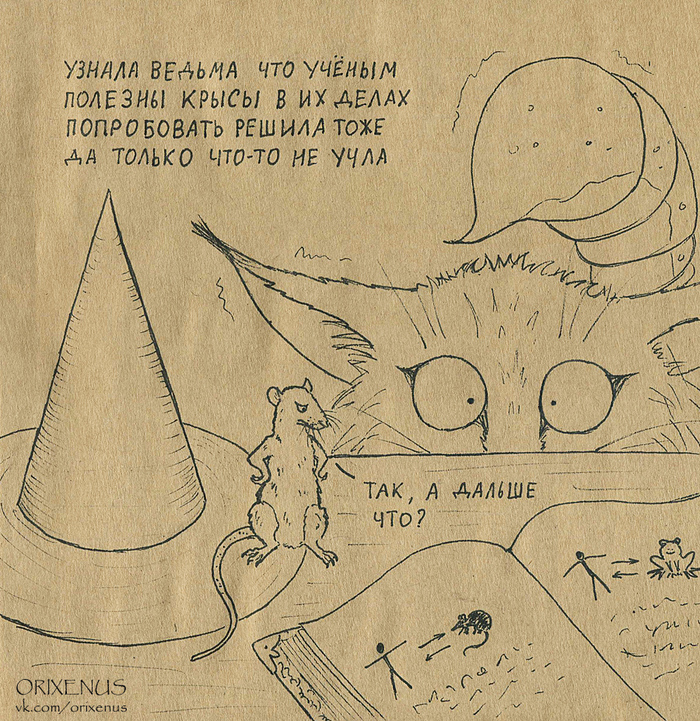 УЗНАЛА ВЕДЬМА ЧТО УЧЁНЫМ
ПОЛЕЗНЫ КРЫСЫ В ИХ ДЕЛАХ
ПОПРОБОВАТЬ РЕШИЛА ТОЖЕ
ДА ТОЛЬКО ЧТО-ТО НЕ УЧЛА
ТАК, А ДАЛЬШЕ
ЧТО?
ORIXENUS
vk.com/orixenus